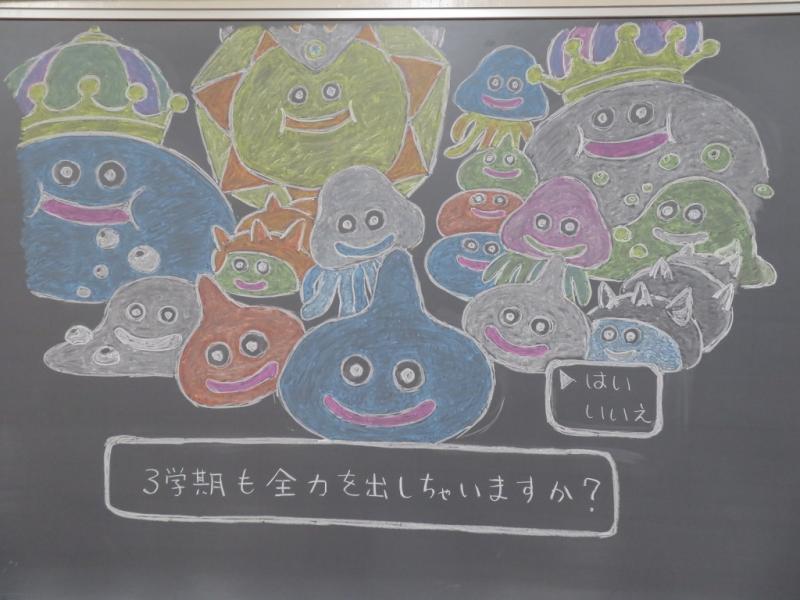 ▶はい
いいえ
3学期も全力を出しちゃいますか?